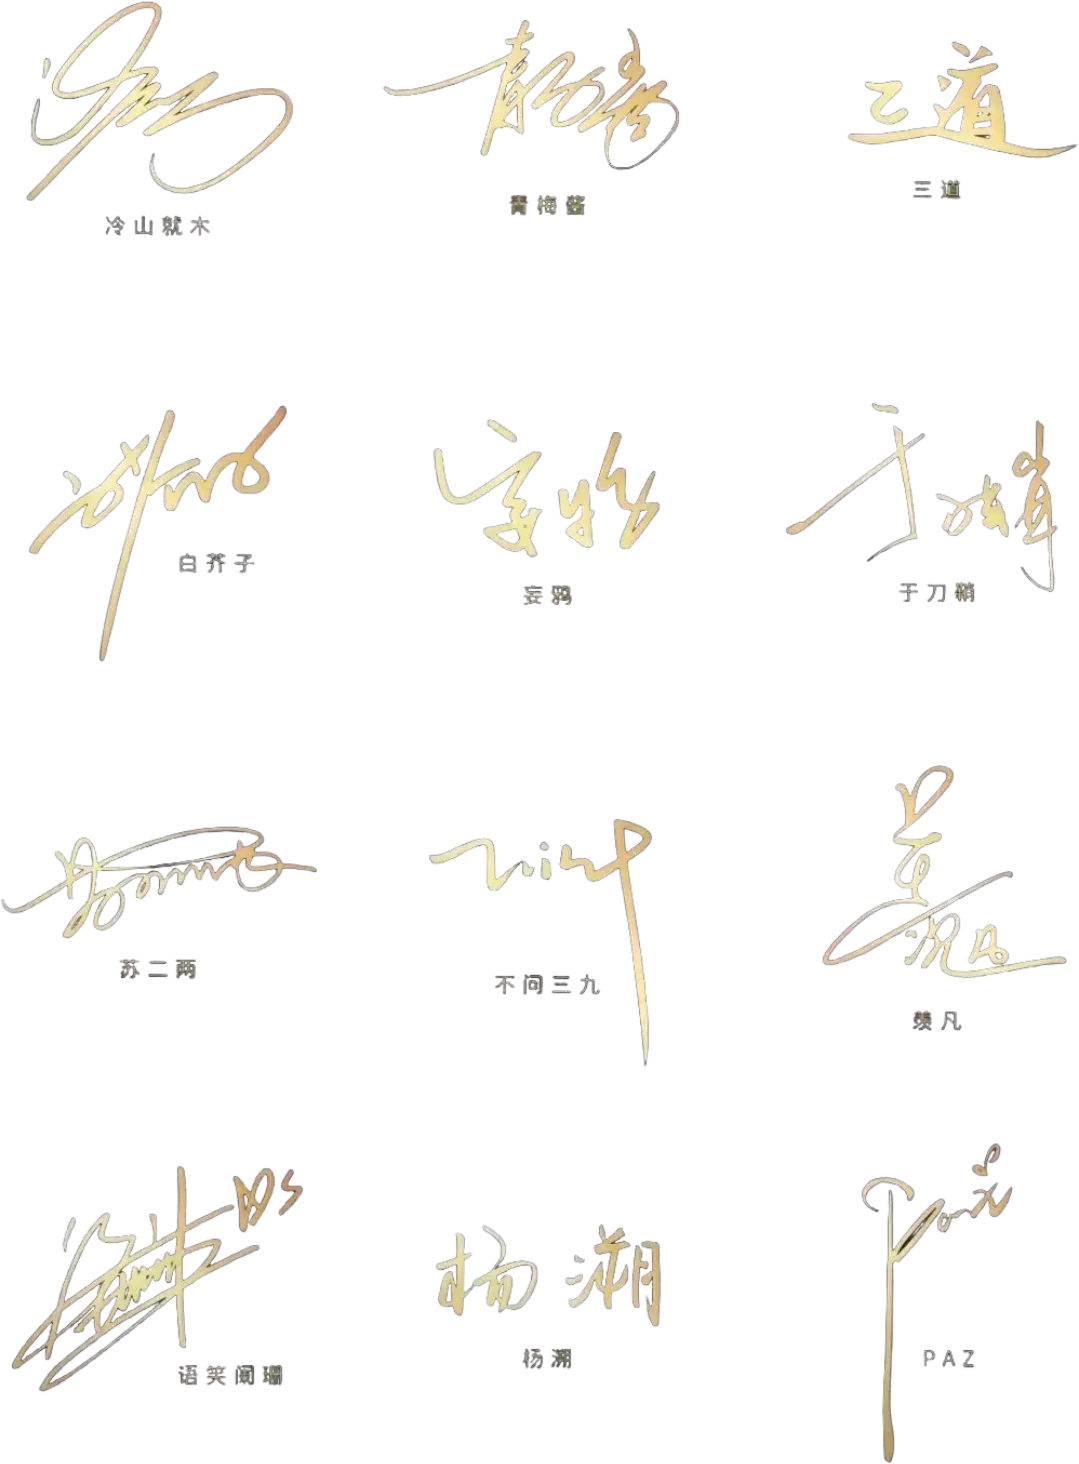 冷山就木
青梅酱
三道
白芥子
妄鸦
于刀鞘
苏二两
不问三九
羡凡
语笑阑珊
杨溯
PAZ